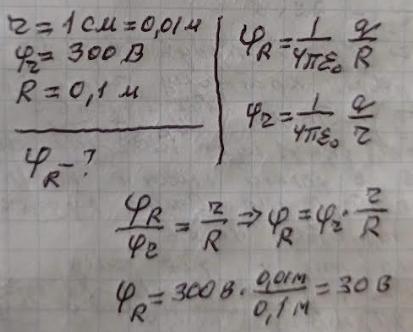 r = 1 см = 0,01 м
φr = 300 В
R = 0,1 м
φR - ?
φR = 1/4πε₀ q/R
φr = 1/4πε₀ q/r
φR/φr = r/R ⇒ φR = φr · r/R
φR = 300 В · 0,01м/0,1м = 30 В